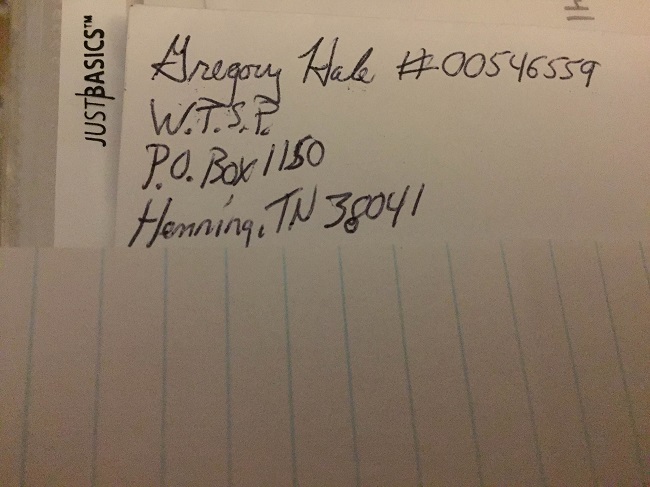 JUST BASICS™
Gregory Hale #00546559
W.T.S.P.
P.O. Box 1150
Henning, TN 38041